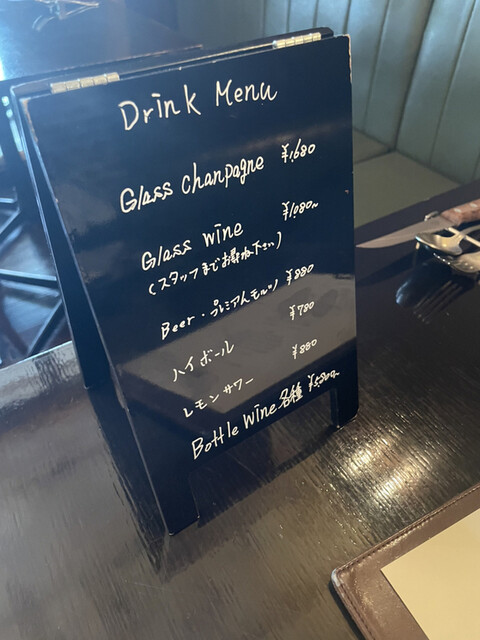 Drink Menu
Glass chanpagne ¥1,680
Glass wine ¥1,080~
(スタッフまでお尋ね下さい)
Beer・プレミアムモルツ ¥880
ハイボール ¥780
レモンサワー ¥880
Bottle Wine 各種 ¥5,500~